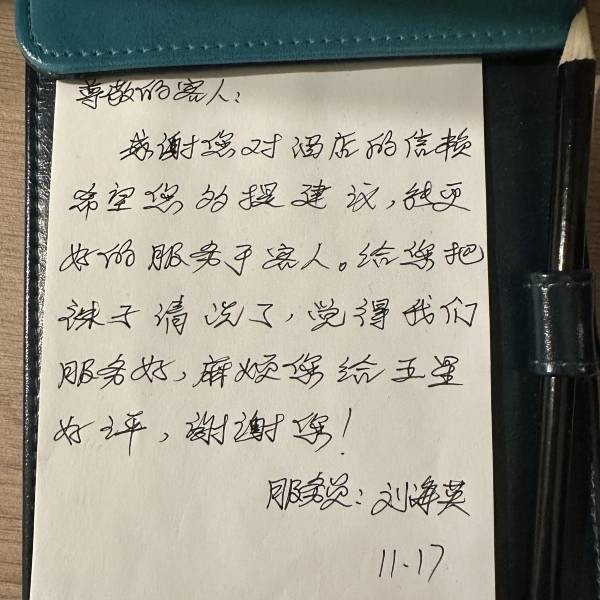 尊敬的客人：
感谢您对酒店的信赖
希望您的提建议，能更
好的服务于客人。给您把
袜子清洗了，觉得我们
服务好，麻烦您给五星
好评，谢谢您！
服务员：刘海英
11.17